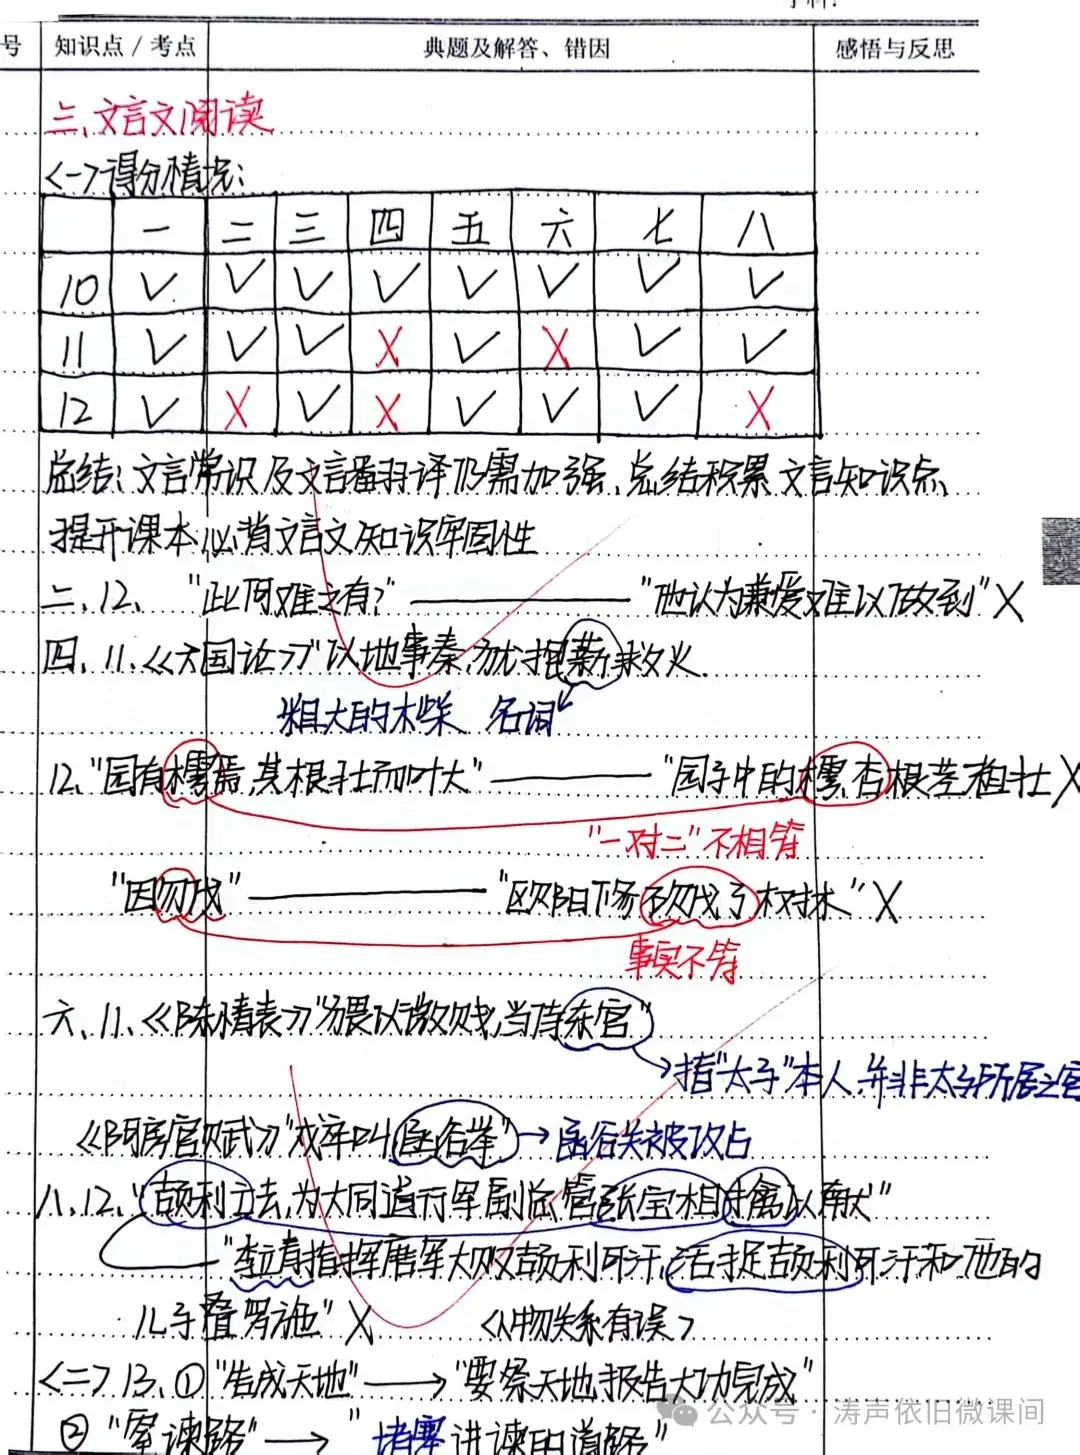 学科:
号 知识点 / 考点 典题及解答、错因 感悟与反思
三、文言文阅读
<一>得分情况:
一 二 三 四 五 六 七 八
10 ✓ ✓ ✓ ✓ ✓ ✓ ✓ ✓
11 ✓ ✓ ✓ X ✓ X ✓ ✓
12 ✓ X ✓ X ✓ ✓ ✓ X
总结:文言常识及文言翻译仍需加强,总结积累文言知识点、
提升课本必背文言文知识牢固性
二、12、"此何难之有?"——"他认为兼爱难以做到"X
四、11.《六国论》"以地事秦,犹抱薪救火
粗大的木柴 名词
12."园有樗焉,其根壮而叶大"——"园子中的樗,杏根茎粗壮X
"一对二"不相等
"因勿伐"——"欧阳修砍伐了树木"X
事实不等
六、11、《陈情表》"猥以微贱,当侍东宫"
→指"太子"本人,并非太子所居之宫
《阿房宫赋》"戍卒叫函谷举"→函谷关被攻占
八、12."颉利立去,为大同道行军副总管张宝相擒以献"
"李靖指挥唐军大败颉利可汗,活捉颉利可汗和他的
儿子叠罗施"X <人物关系有误>
<二>13.①"告成天地"→"要祭天地,报告大功完成"
②"窒谏路"→"堵塞进谏的道路"
公众号·涛声依旧微课间